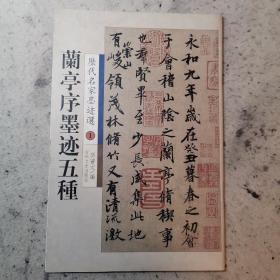 永和九年歲在癸丑暮春之初會
于會稽山陰之蘭亭脩稧事
也群賢畢至少長咸集此地
有崇山峻領茂林脩竹又有清流激
歷代名家墨迹選 1
蘭亭序墨迹五種